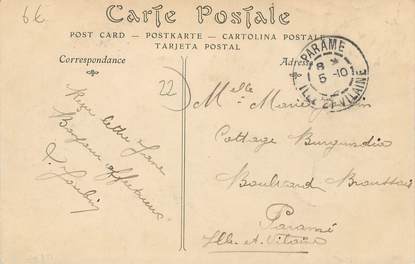 6€
Carte Postale
POST CARD - POSTKARTE - CARTOLINA POSTALE
TARJETA POSTAL
Correspondance
Adresse
PARAMÉ
8
5 -10
ILLE ET VILAINE
22
Reçu lettre
Melle Marie
Cottage Burgundia
Boulevard Broussais
Paramé
Ille-et-Vilaine